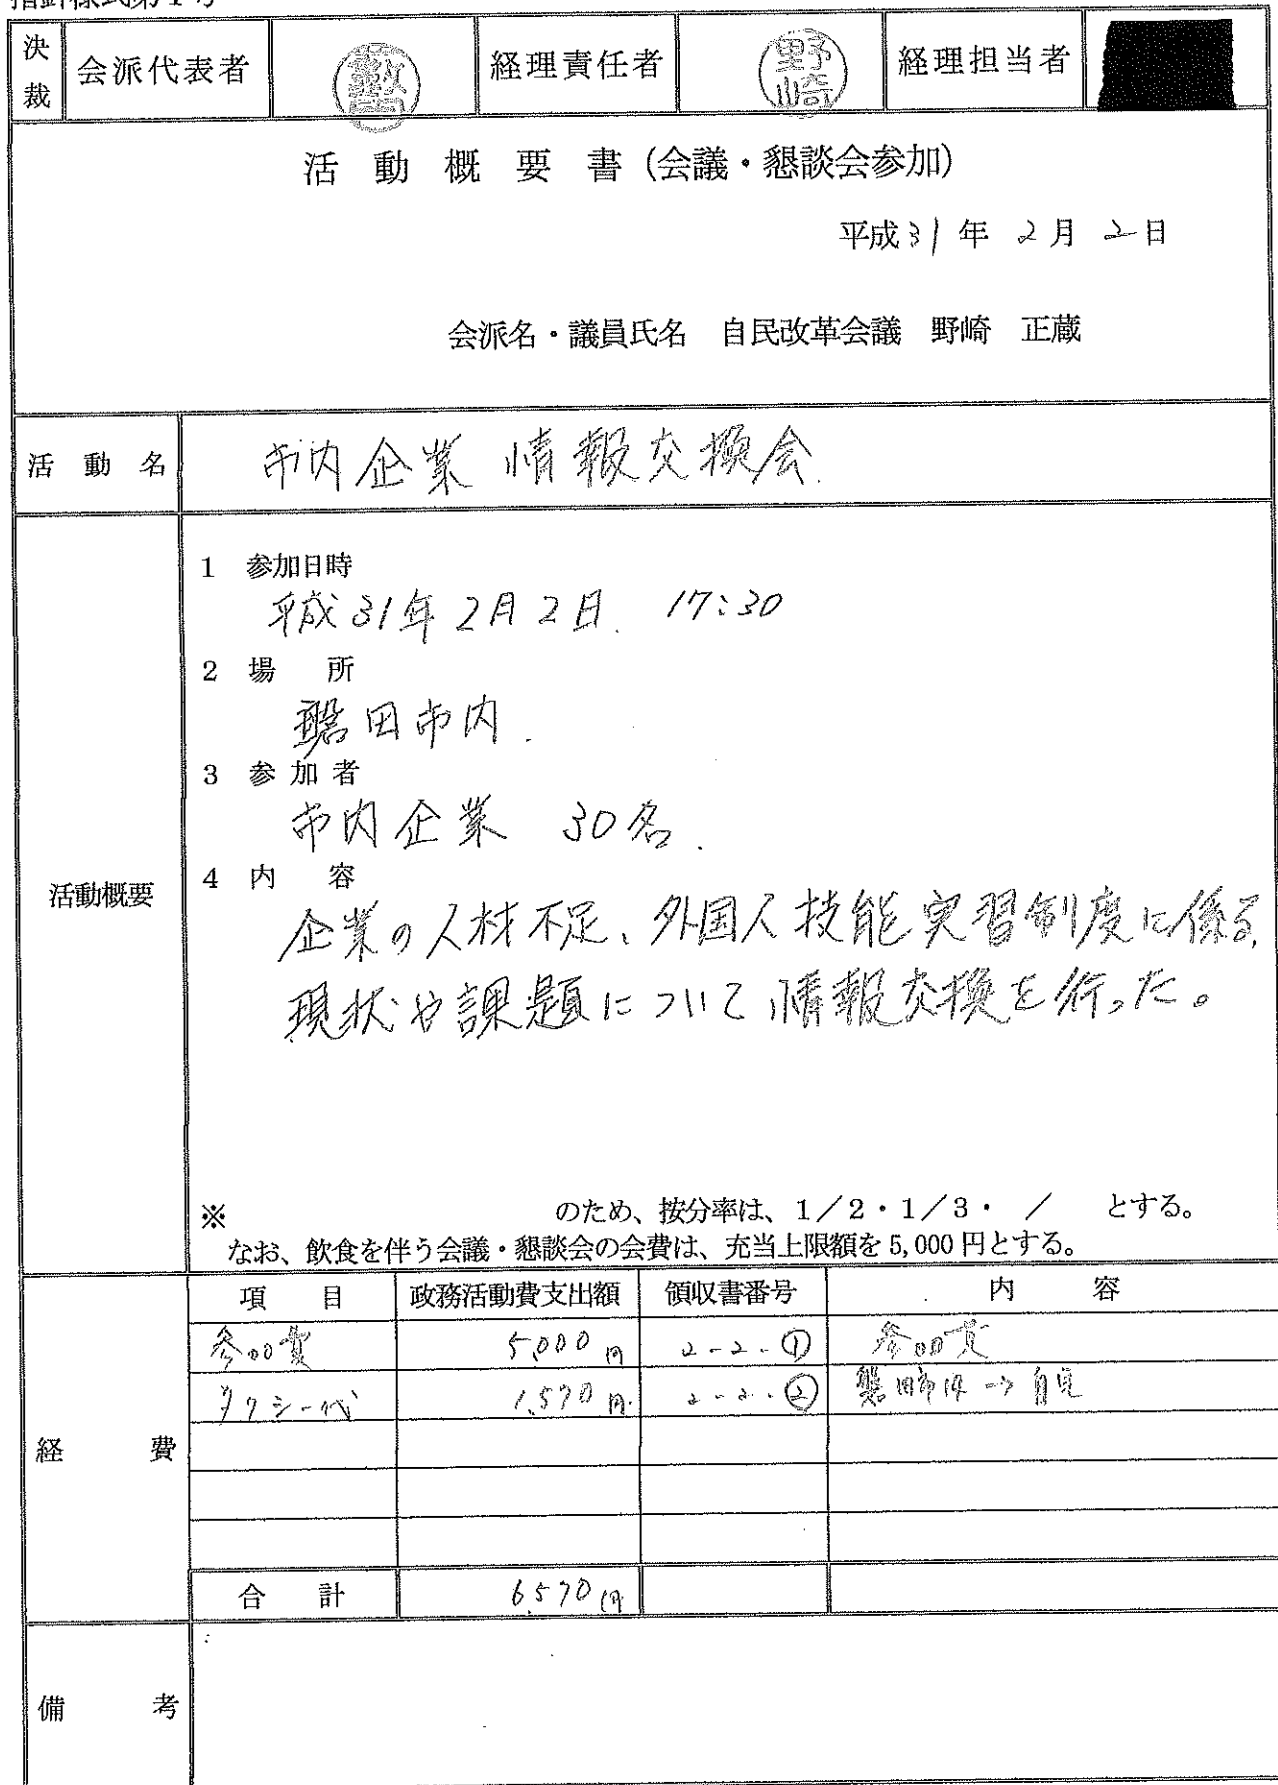 決裁 会派代表者 経理責任者 野崎 経理担当者
活動概要書(会議・懇談会参加)
平成31年2月2日
会派名・議員氏名 自民改革会議 野崎 正蔵
活動名 市内企業 情報交換会.
活動概要
1 参加日時
平成31年2月2日. 17:30
2 場所
磐田市内.
3 参加者
市内企業 30名.
4 内容
企業の人材不足、外国人技能実習制度に係る、
現状や課題について情報交換を行った。
※ のため、按分率は、1/2・1/3・ / とする。
なお、飲食を伴う会議・懇談会の会費は、充当上限額を5,000円とする。
経費
項目 政務活動費支出額 領収書番号 内容
参加費 5,000円 2-2-① 参加費
タクシー代 1,570円 2-2-② 磐田市内→自宅
合計 6,570円
備考